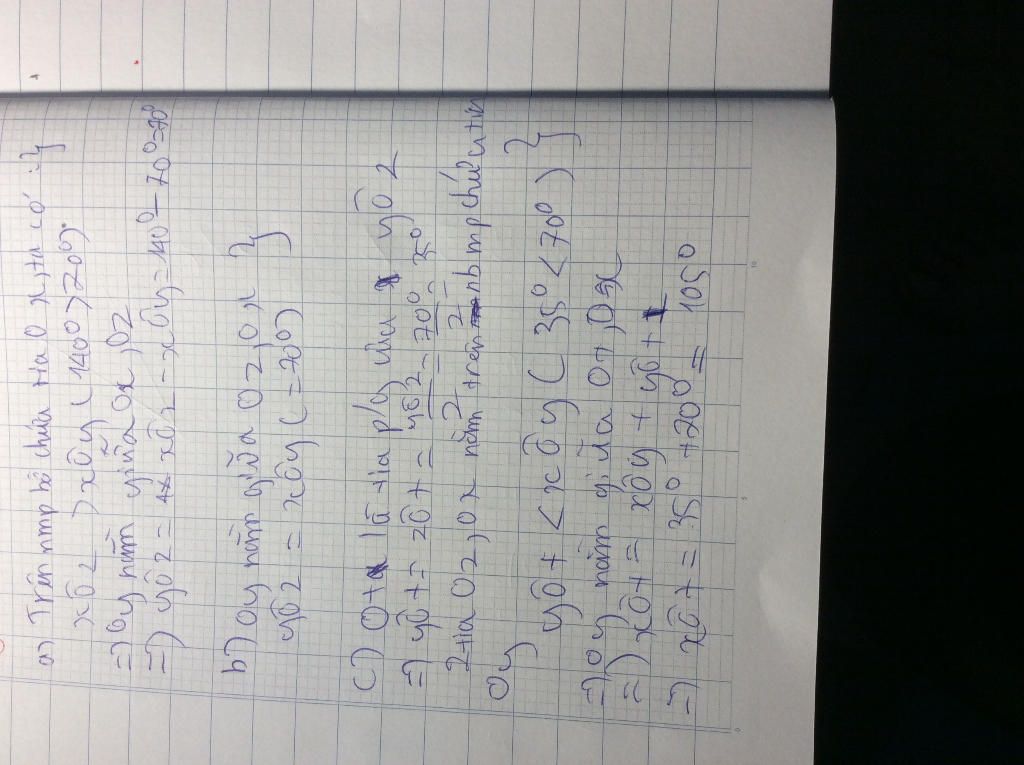 a) Trên nmp bờ chứa tia Ox, ta có : }
xôz > xôy (140⁰ > 70⁰).
=) Oy nằm giữa Ox, Oz
=) yôz = xôz - xôy = 140⁰ - 70⁰ = 70⁰
b) Oy nằm giữa Oz, Ox }
yôz = xôy (= 70⁰)
c) Ot là tia p/g của yôz
=) yôt = zôt = yôz/2 = 70⁰/2 = 35⁰)
2 tia Oz, Ox nằm trên 2 nb mp chứa tia
Oy
yôt < xôy ( 35⁰ < 70⁰ ) }
=) Oy nằm giữa Ot, Ox
=) xôt = xôy + yôt
=) xôt = 35⁰ + 70⁰ = 105⁰